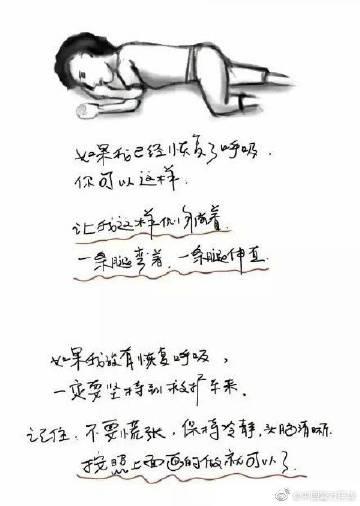 如果我已经恢复了呼吸.
你可以这样.
让我这样侧躺着.
一条腿弯着.一条腿伸直.
如果我没有恢复呼吸,
一定要坚持到救护车来.
记住.不要慌张,保持冷静,头脑清晰.
按照上面画的做就可以了.